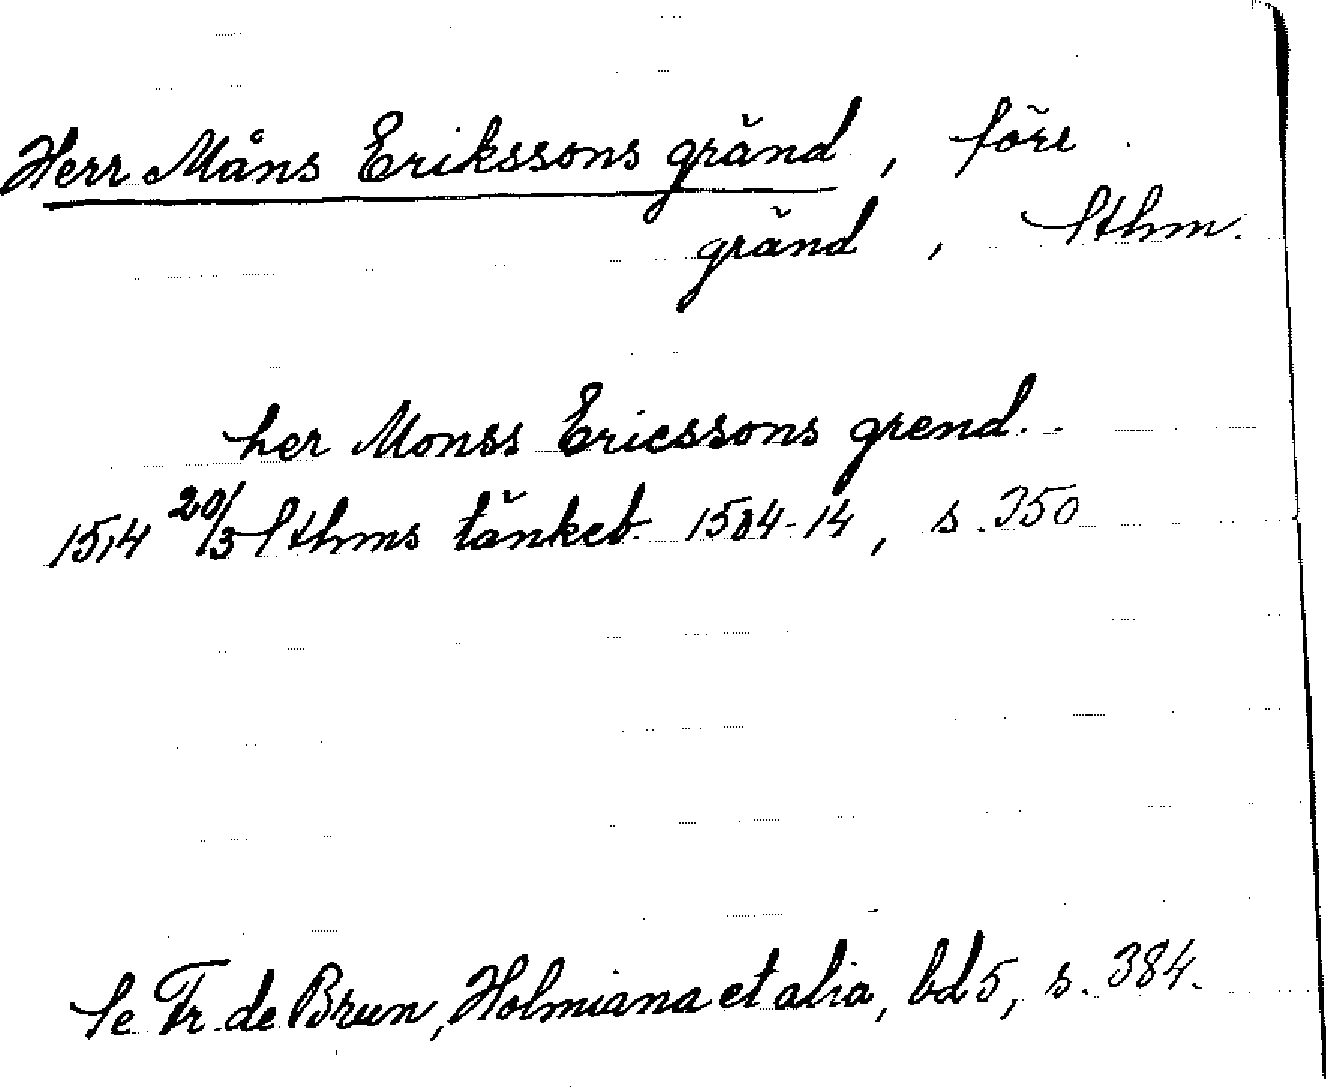 Herr Måns Erikssons gränd, före
gränd, Sthm.
her Monss Ericssons grend.
1514 20/3 Sthms tänkeb. 1504-14, s. 350
Se Fr. de Brun, Holmiana et alia, bd 5, s. 384.